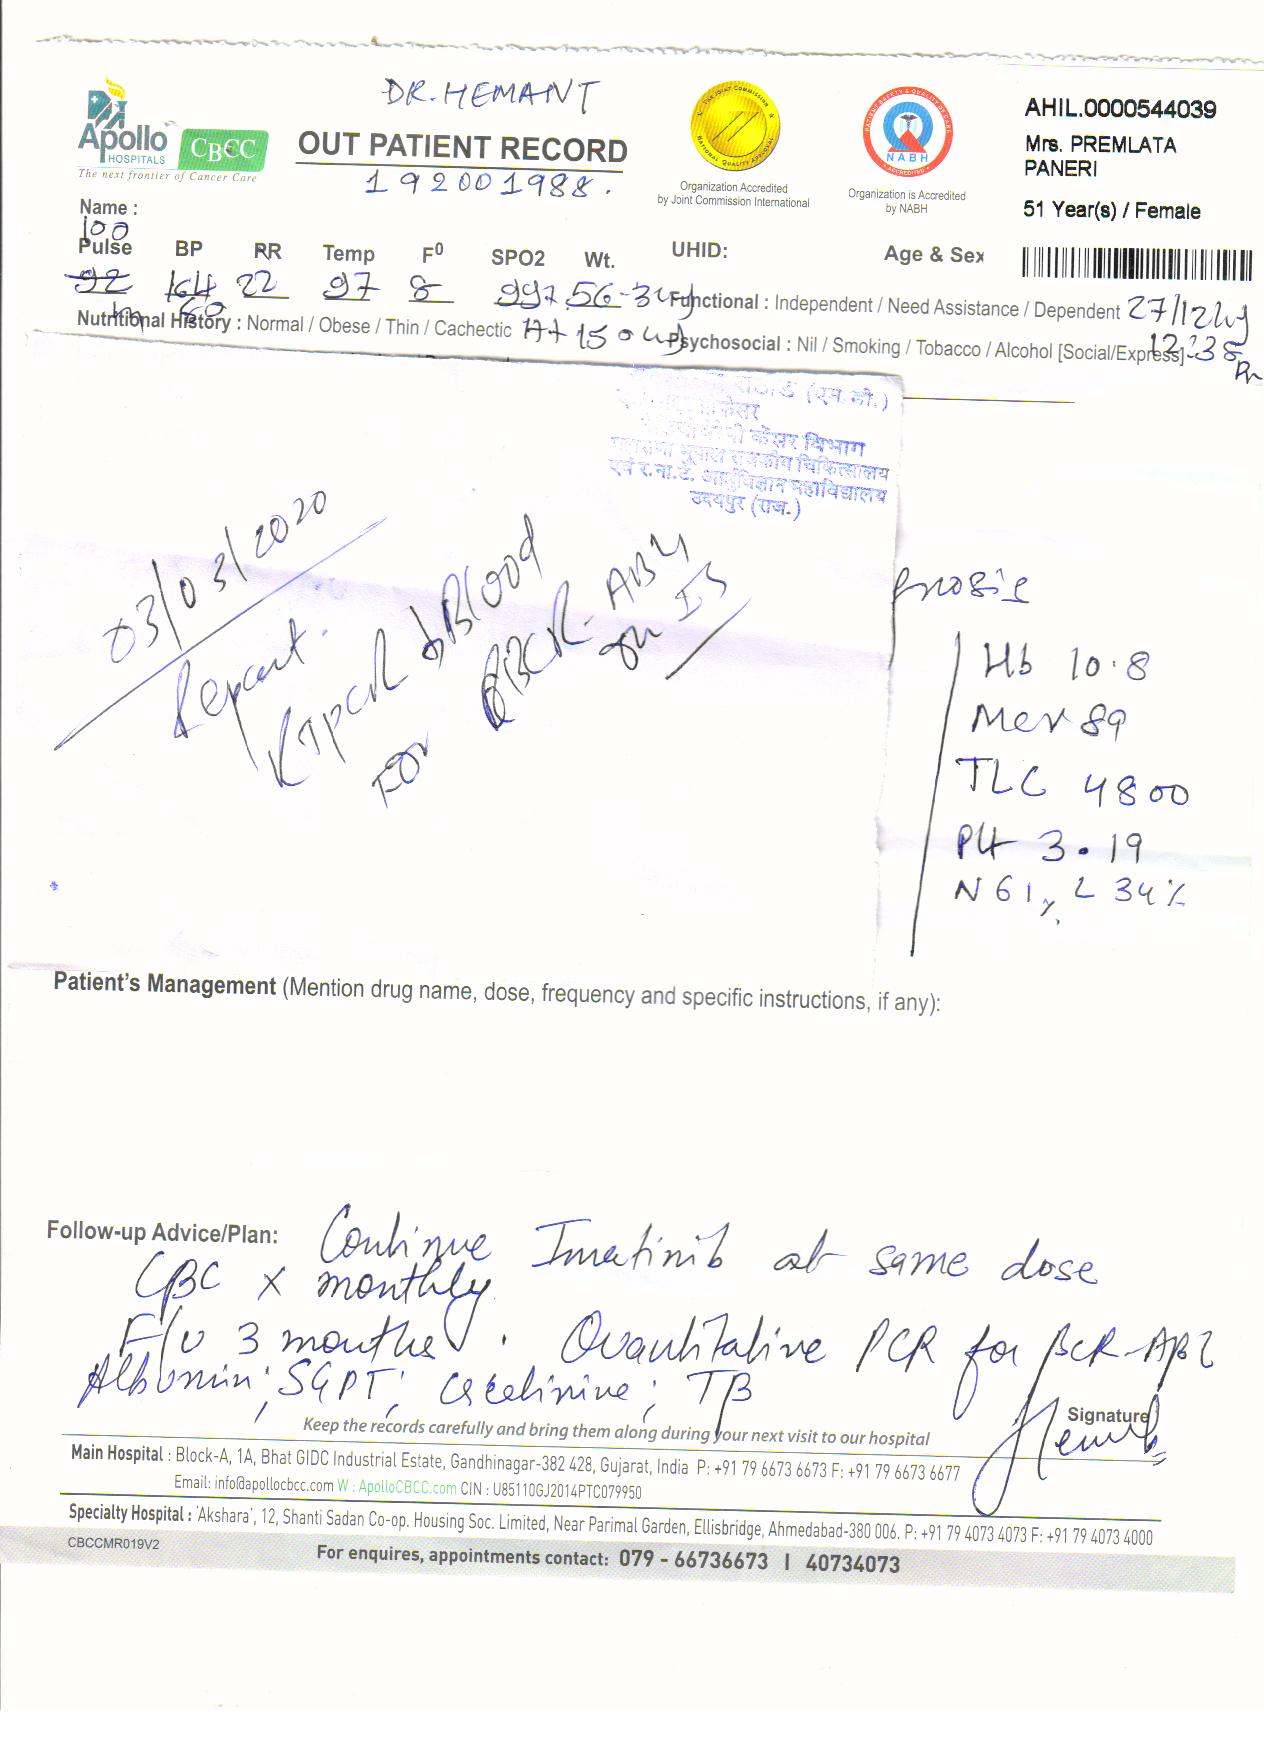 DR. HEMANT
Apollo
HOSPITALS
CBCC
The next frontier of Cancer Care
OUT PATIENT RECORD
192001988.
THE JOINT COMMISSION
NATIONAL QUALITY APPROVAL
Organization Accredited
by Joint Commission International
NABH
Organization is Accredited
by NABH
AHIL.0000544039
Mrs. PREMLATA
PANERI
51 Year(s) / Female
Name :
100
Pulse BP RR Temp F⁰ SPO2 Wt. UHID: Age & Sex
92 164 22 97 8 99% 56-3kg
60
Functional : Independent / Need Assistance / Dependent
27/12/19
Nutritional History : Normal / Obese / Thin / Cachectic Ht 150
Psychosocial : Nil / Smoking / Tobacco / Alcohol [Social/Express]
12:38
कैंसर विभाग
राजकीय चिकित्सालय
एवं र.ना.टे. आयुर्विज्ञान महाविद्यालय
उदयपुर (राज.)
03/03/2020
Repeat.
RTPCR of Blood
For BCR-ABL
on IS
Hb 10.8
MCV 89
TLC 4800
Plt 3.19
N 61%, L 34%
Patient's Management (Mention drug name, dose, frequency and specific instructions, if any):
Follow-up Advice/Plan: Continue Imatinib at same dose
CBC x monthly
F/U 3 months. Quantitative PCR for BCR-ABL
Albumin, SGPT, Creatinine, TB
Keep the records carefully and bring them along during your next visit to our hospital
Signature
Main Hospital : Block-A, 1A, Bhat GIDC Industrial Estate, Gandhinagar-382 428, Gujarat, India P: +91 79 6673 6673 F: +91 79 6673 6677
Email: info@apollocbcc.com W : ApolloCBCC.com CIN : U85110GJ2014PTC079950
Specialty Hospital : 'Akshara', 12, Shanti Sadan Co-op. Housing Soc. Limited, Near Parimal Garden, Ellisbridge, Ahmedabad-380 006. P: +91 79 4073 4073 F: +91 79 4073 4000
CBCCMR019V2
For enquires, appointments contact: 079 - 66736673 I 40734073